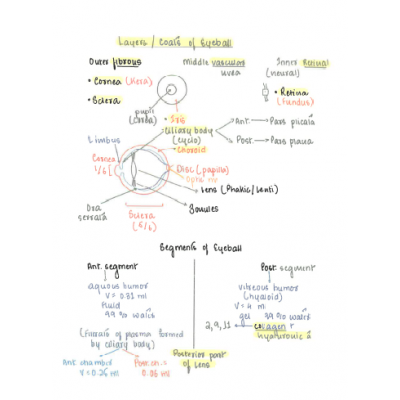 Layers / Coats of Eyeball
Outer fibrous
Middle vascular
uvea
Inner Retinal
(neural)
• Cornea (Kera)
• Sclera
pupil
(corea)
• Iris
Ciliary body
(cyclo)
• Choroid
Ant. → Pars plicata
Post. → Pars plana
• Retina
(fundus)
Limbus
Cornea
1/6
Disc (papilla)
Optic nv
Lens (Phakic/Lenti)
Zonules
Ora
serrata
Sclera
(5/6)
Segments of Eyeball
Ant. segment
aqueous humor
V = 0.31 ml
fluid
99 % water
(Filtrate of plasma formed
by ciliary body)
Ant. chamber
V = 0.25 ml
Post. ch
0.06 ml
Posterior part
of Lens
Post. segment
vitreous humor
(hyaloid)
V = 4 m
gel 99 % water
2, 9, 11 ← collagen +
hyaluronic a